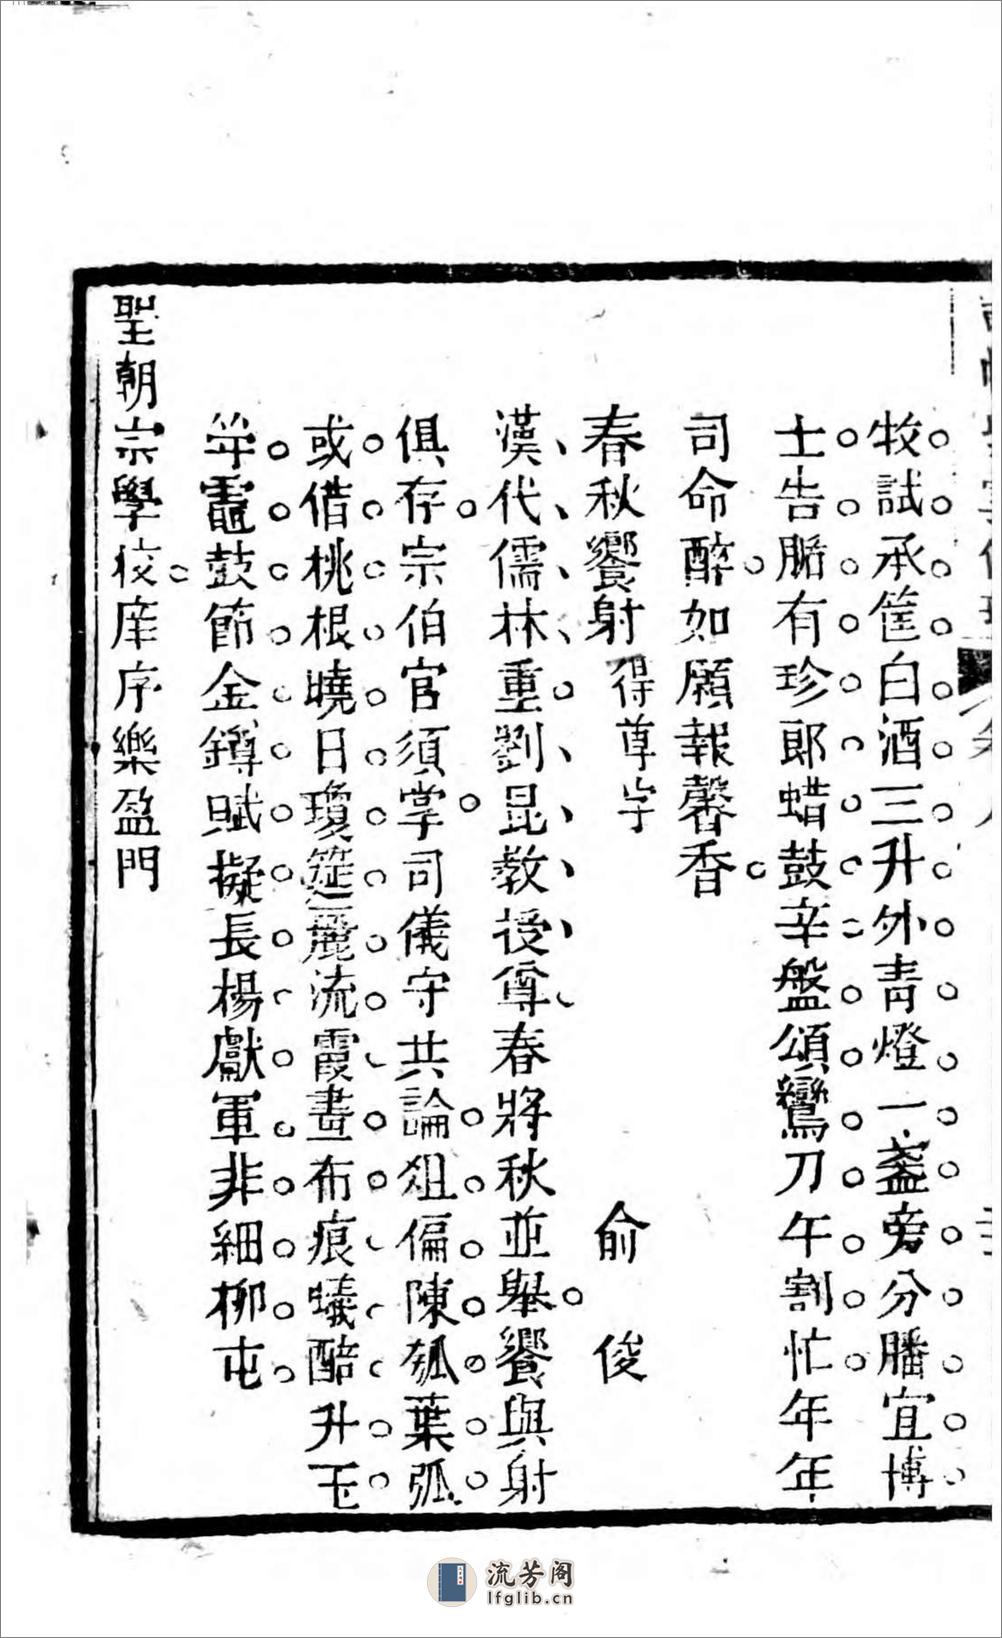 牧試承筐白酒三升外青燈一盞旁分膰宜博
士告賑有珍郎蜡鼓辛盤頌鸞刀午割忙年年
司命醉如願報馨香
春秋饗射 得尊字 俞俊
漢代儒林重劉昆教授尊春將秋並舉饗與射
俱存宗伯官須掌司儀守共論俎偏陳瓠葉弧
或借桃根曉日瓊筵麗流霞畫布痕蟻醅升玉
斝鼉鼓節金鐏賦擬長楊獻軍非細柳屯
聖朝崇學校庠序樂盈門
流芳阁
lfglib.cn